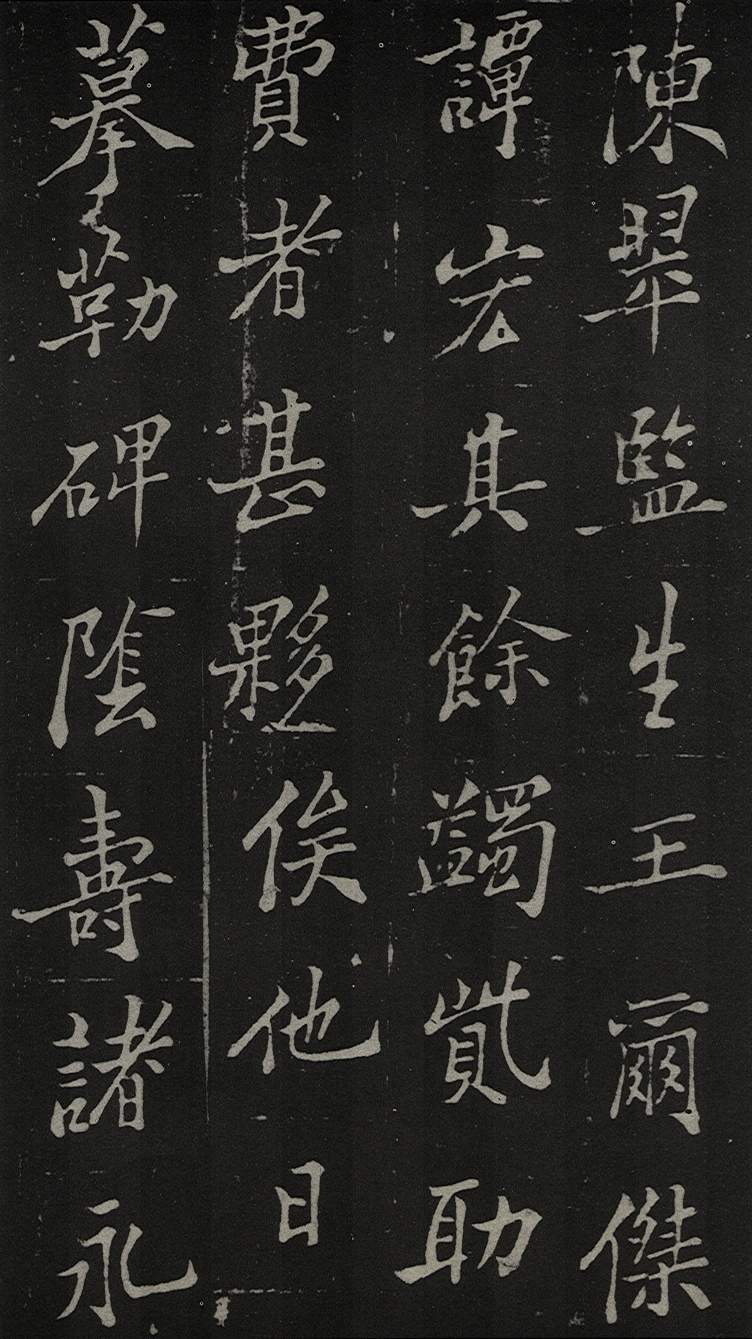 陳翆監生王爾傑
譚宏其餘蠲貲助
費者甚夥俟他日
摹勒碑陰壽諸永